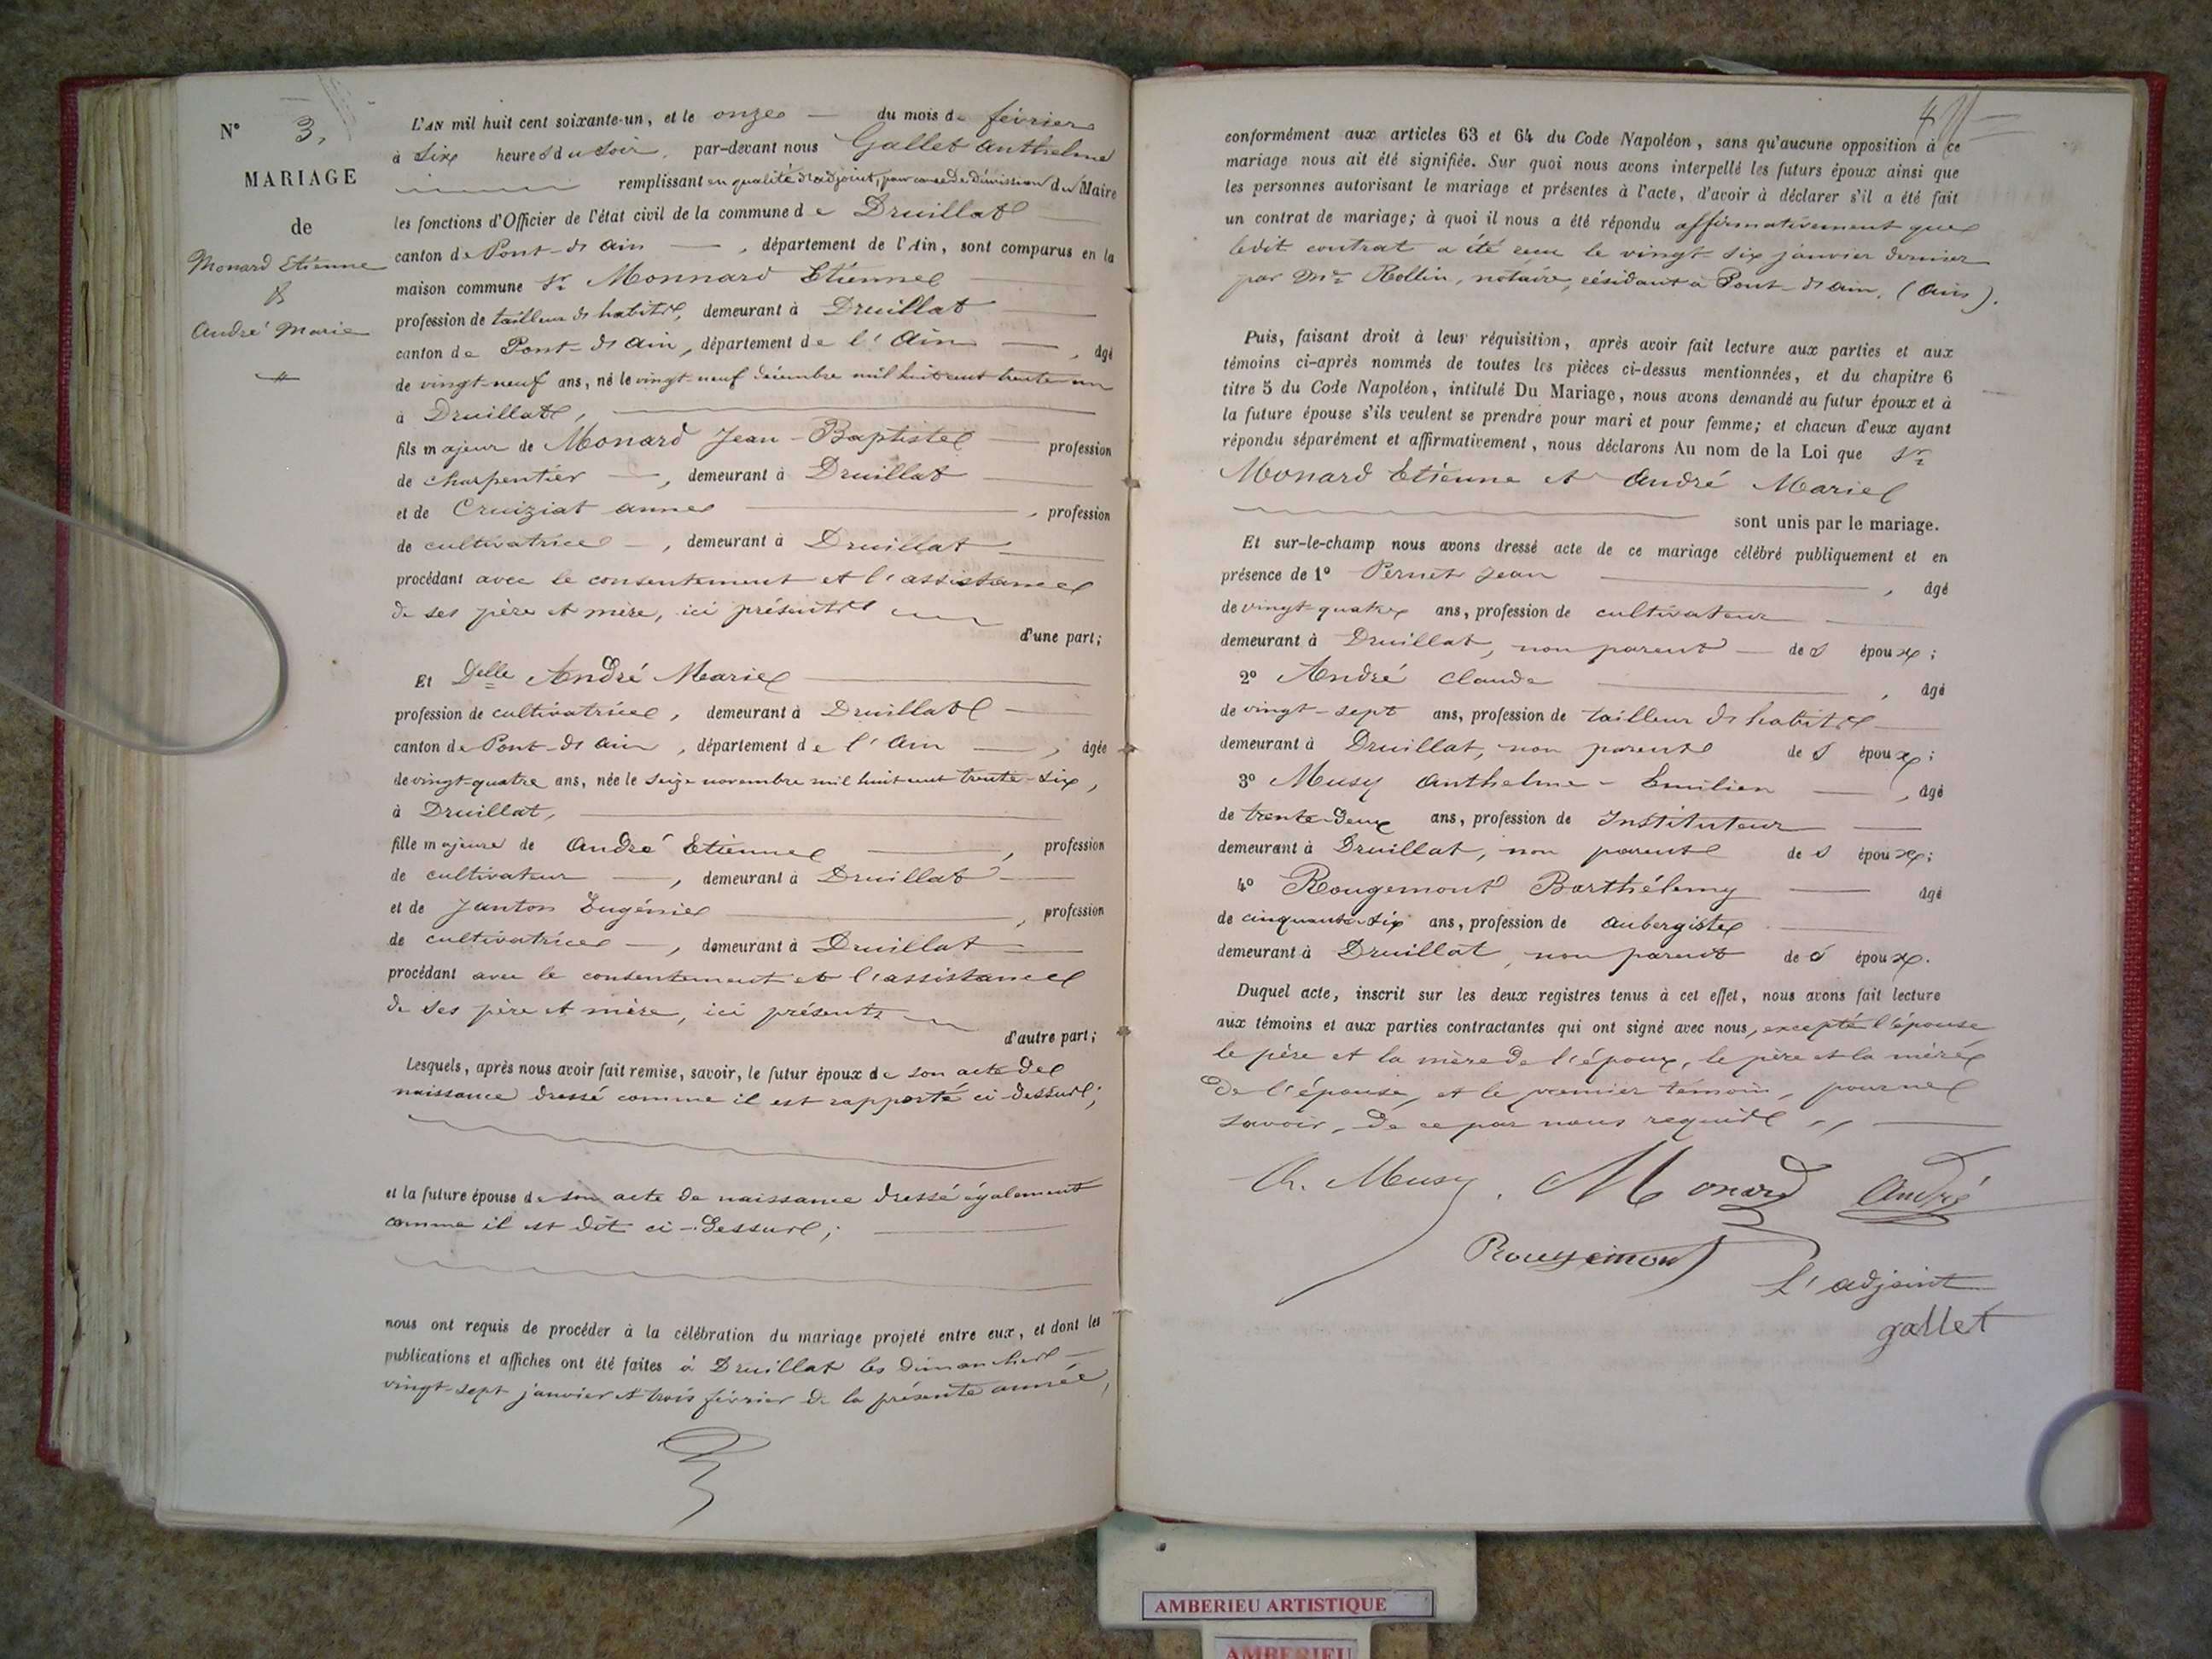 N° 3.
MARIAGE
de
Monard Etienne
&
André Marie
L'AN mil huit cent soixante-un, et le onze du mois de février
à six heures du soir, par-devant nous Gallet Anthelme
remplissant en qualité d'adjoint, pour cause de démission du Maire
les fonctions d'Officier de l'état civil de la commune de Druillat
canton de Pont-d'Ain, département de l'Ain, sont comparus en la
maison commune Sr Monnard Etienne
profession de tailleur d'habits, demeurant à Druillat
canton de Pont-d'Ain, département de l'Ain, âgé
de vingt-neuf ans, né le vingt-neuf décembre mil huit cent trente un
à Druillat,
fils majeur de Monard Jean-Baptiste profession
de charpentier, demeurant à Druillat
et de Cruiziat anne, profession
de cultivatrice, demeurant à Druillat
procédant avec le consentement et l'assistance
de ses père et mère, ici présents
d'une part;
Et Delle André Marie
profession de cultivatrice, demeurant à Druillat
canton de Pont-d'Ain, département de l'Ain, âgée
de vingt-quatre ans, née le seize novembre mil huit cent trente-six,
à Druillat,
fille majeure de André Etienne, profession
de cultivateur, demeurant à Druillat
et de Janton Eugénie, profession
de cultivatrice, demeurant à Druillat
procédant avec le consentement et l'assistance
de ses père et mère, ici présents
d'autre part;
Lesquels, après nous avoir fait remise, savoir, le futur époux de son acte de
naissance dressé comme il est rapporté ci-dessus;
et la future épouse de son acte de naissance dressé également
comme il est dit ci-dessus;
nous ont requis de procéder à la célébration du mariage projeté entre eux, et dont les
publications et affiches ont été faites à Druillat les dimanches
vingt-sept janvier et trois février de la présente année,
conformément aux articles 63 et 64 du Code Napoléon, sans qu'aucune opposition à ce
mariage nous ait été signifiée. Sur quoi nous avons interpellé les futurs époux ainsi que
les personnes autorisant le mariage et présentes à l'acte, d'avoir à déclarer s'il a été fait
un contrat de mariage; à quoi il nous a été répondu affirmativement que
ledit contrat a été reçu le vingt-six janvier dernier
par Me Rollin, notaire, résidant à Pont-d'Ain, (Ain).
Puis, faisant droit à leur réquisition, après avoir fait lecture aux parties et aux
témoins ci-après nommés de toutes les pièces ci-dessus mentionnées, et du chapitre 6
titre 5 du Code Napoléon, intitulé Du Mariage, nous avons demandé au futur époux et à
la future épouse s'ils veulent se prendre pour mari et pour femme; et chacun d'eux ayant
répondu séparément et affirmativement, nous déclarons Au nom de la Loi que Sr
Monard Etienne et André Marie
sont unis par le mariage.
Et sur-le-champ nous avons dressé acte de ce mariage célébré publiquement et en
présence de 1° Pernet Jean, âgé
de vingt-quatre ans, profession de cultivateur
demeurant à Druillat, non parent des époux;
2° André Claude, âgé
de vingt-sept ans, profession de tailleur d'habits
demeurant à Druillat, non parent des époux;
3° Musy Anthelme-Emilien, âgé
de trente-deux ans, profession de Instituteur
demeurant à Druillat, non parent des époux;
4° Rougemont Barthélemy âgé
de cinquante-six ans, profession de aubergiste
demeurant à Druillat, non parent des époux.
Duquel acte, inscrit sur les deux registres tenus à cet effet, nous avons fait lecture
aux témoins et aux parties contractantes qui ont signé avec nous, excepté l'épouse
le père et la mère de l'époux, le père et la mère
de l'épouse, et le premier témoin, pour ne
savoir, de ce par nous requis
Musy. Monard André
Rougemont
L'adjoint
gallet
AMBERIEU ARTISTIQUE
AMBERIEU